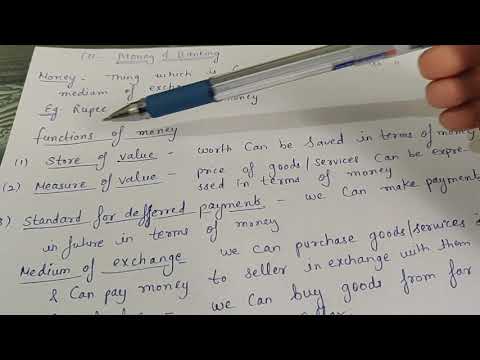 Money & Banking
Money - Thing which is
medium of exch
Eg. Rupee money
functions of money
(1) Store of value - worth Can be saved in terms of money
(2) Measure of value - price of goods/services Can be expre-
ssed in terms of money
3) Standard for deffrred payments - we Can make payments
in future in terms of money
Medium of exchange we can purchase goods/services
& Can pay money to seller in exchange with them
we Can buy goods from far